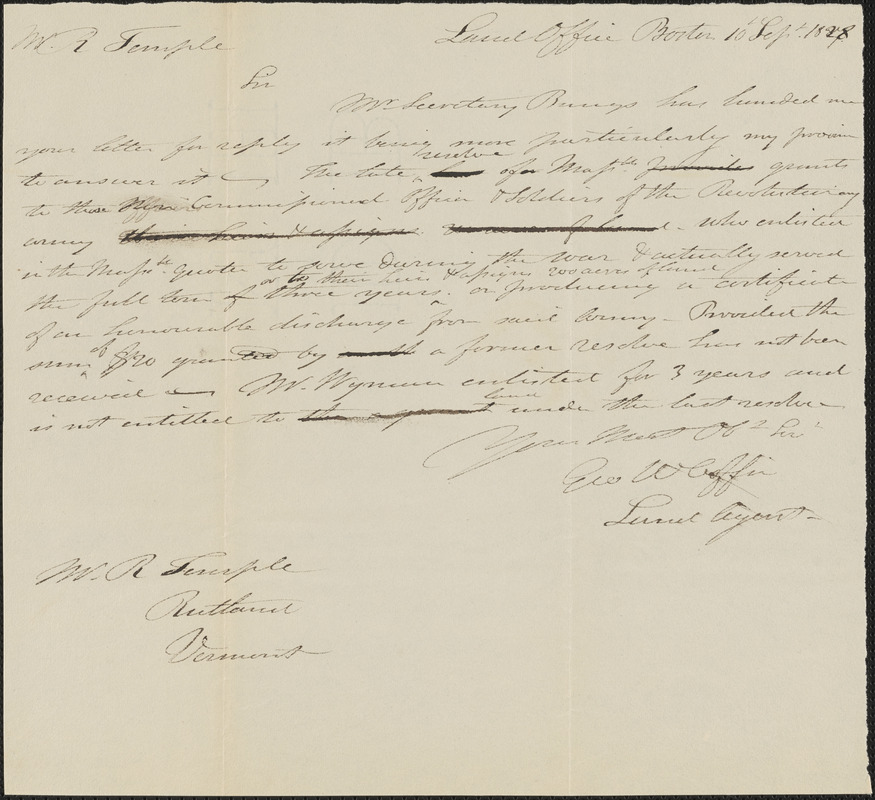 Mr. R Temple
Land Office Boston 10th Sept. 1828
Sir
Mr Secretary Bangs has handed me
your letter for reply it being more particularly my provin
to answer it The late resolve of Massts. grants
to those Non Commissioned Officers & Soldiers of the Revolutionary
army who enlisted
in the Massts. quota to serve during the war & actually served
or to their heirs & assigns 200 acres of land
the full term of three years. on producing a certificate
of an honourable discharge from said Army - Provided the
sum of $20 granted by a former resolve has not been
received Mr. Wyman enlisted for 3 years and
is not entitled to land under the last resolve
Your Most Obt Svt
Geo W Coffin
Land Agent
Mr. R Temple
Rutland
Vermont